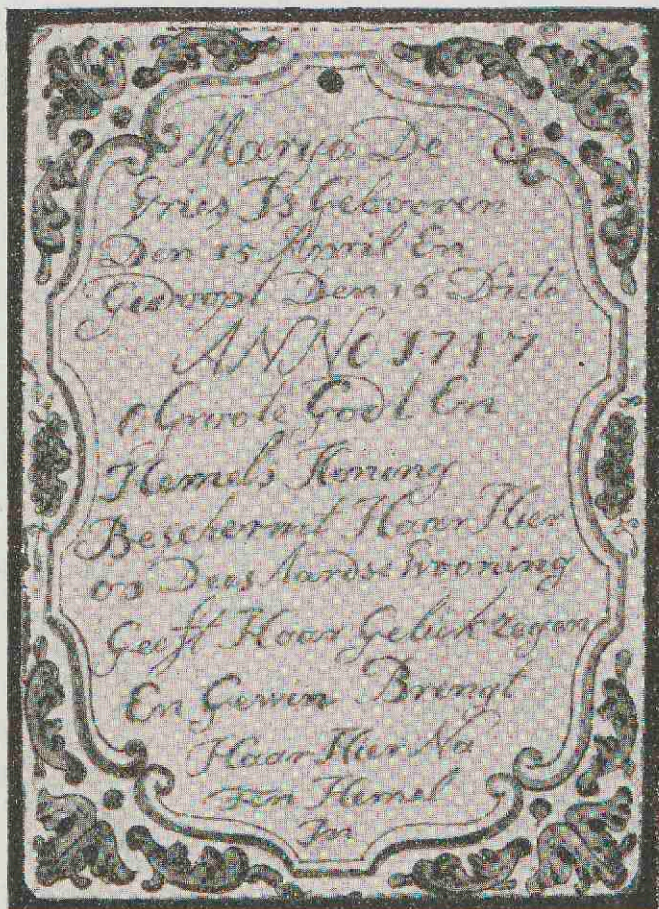 Marya De
Vries Is Gebooren
Den 15 April En
Gedoopt Den 16 Dito
ANNO 1717
O Groote Godt En
Hemels Koning
Beschermt Haar Hier
op Dees Aardse Wooning
Geeft Haar Geluk Zegen
En Gewin Brengt
Haar Hier Na
Ten Hemel
In